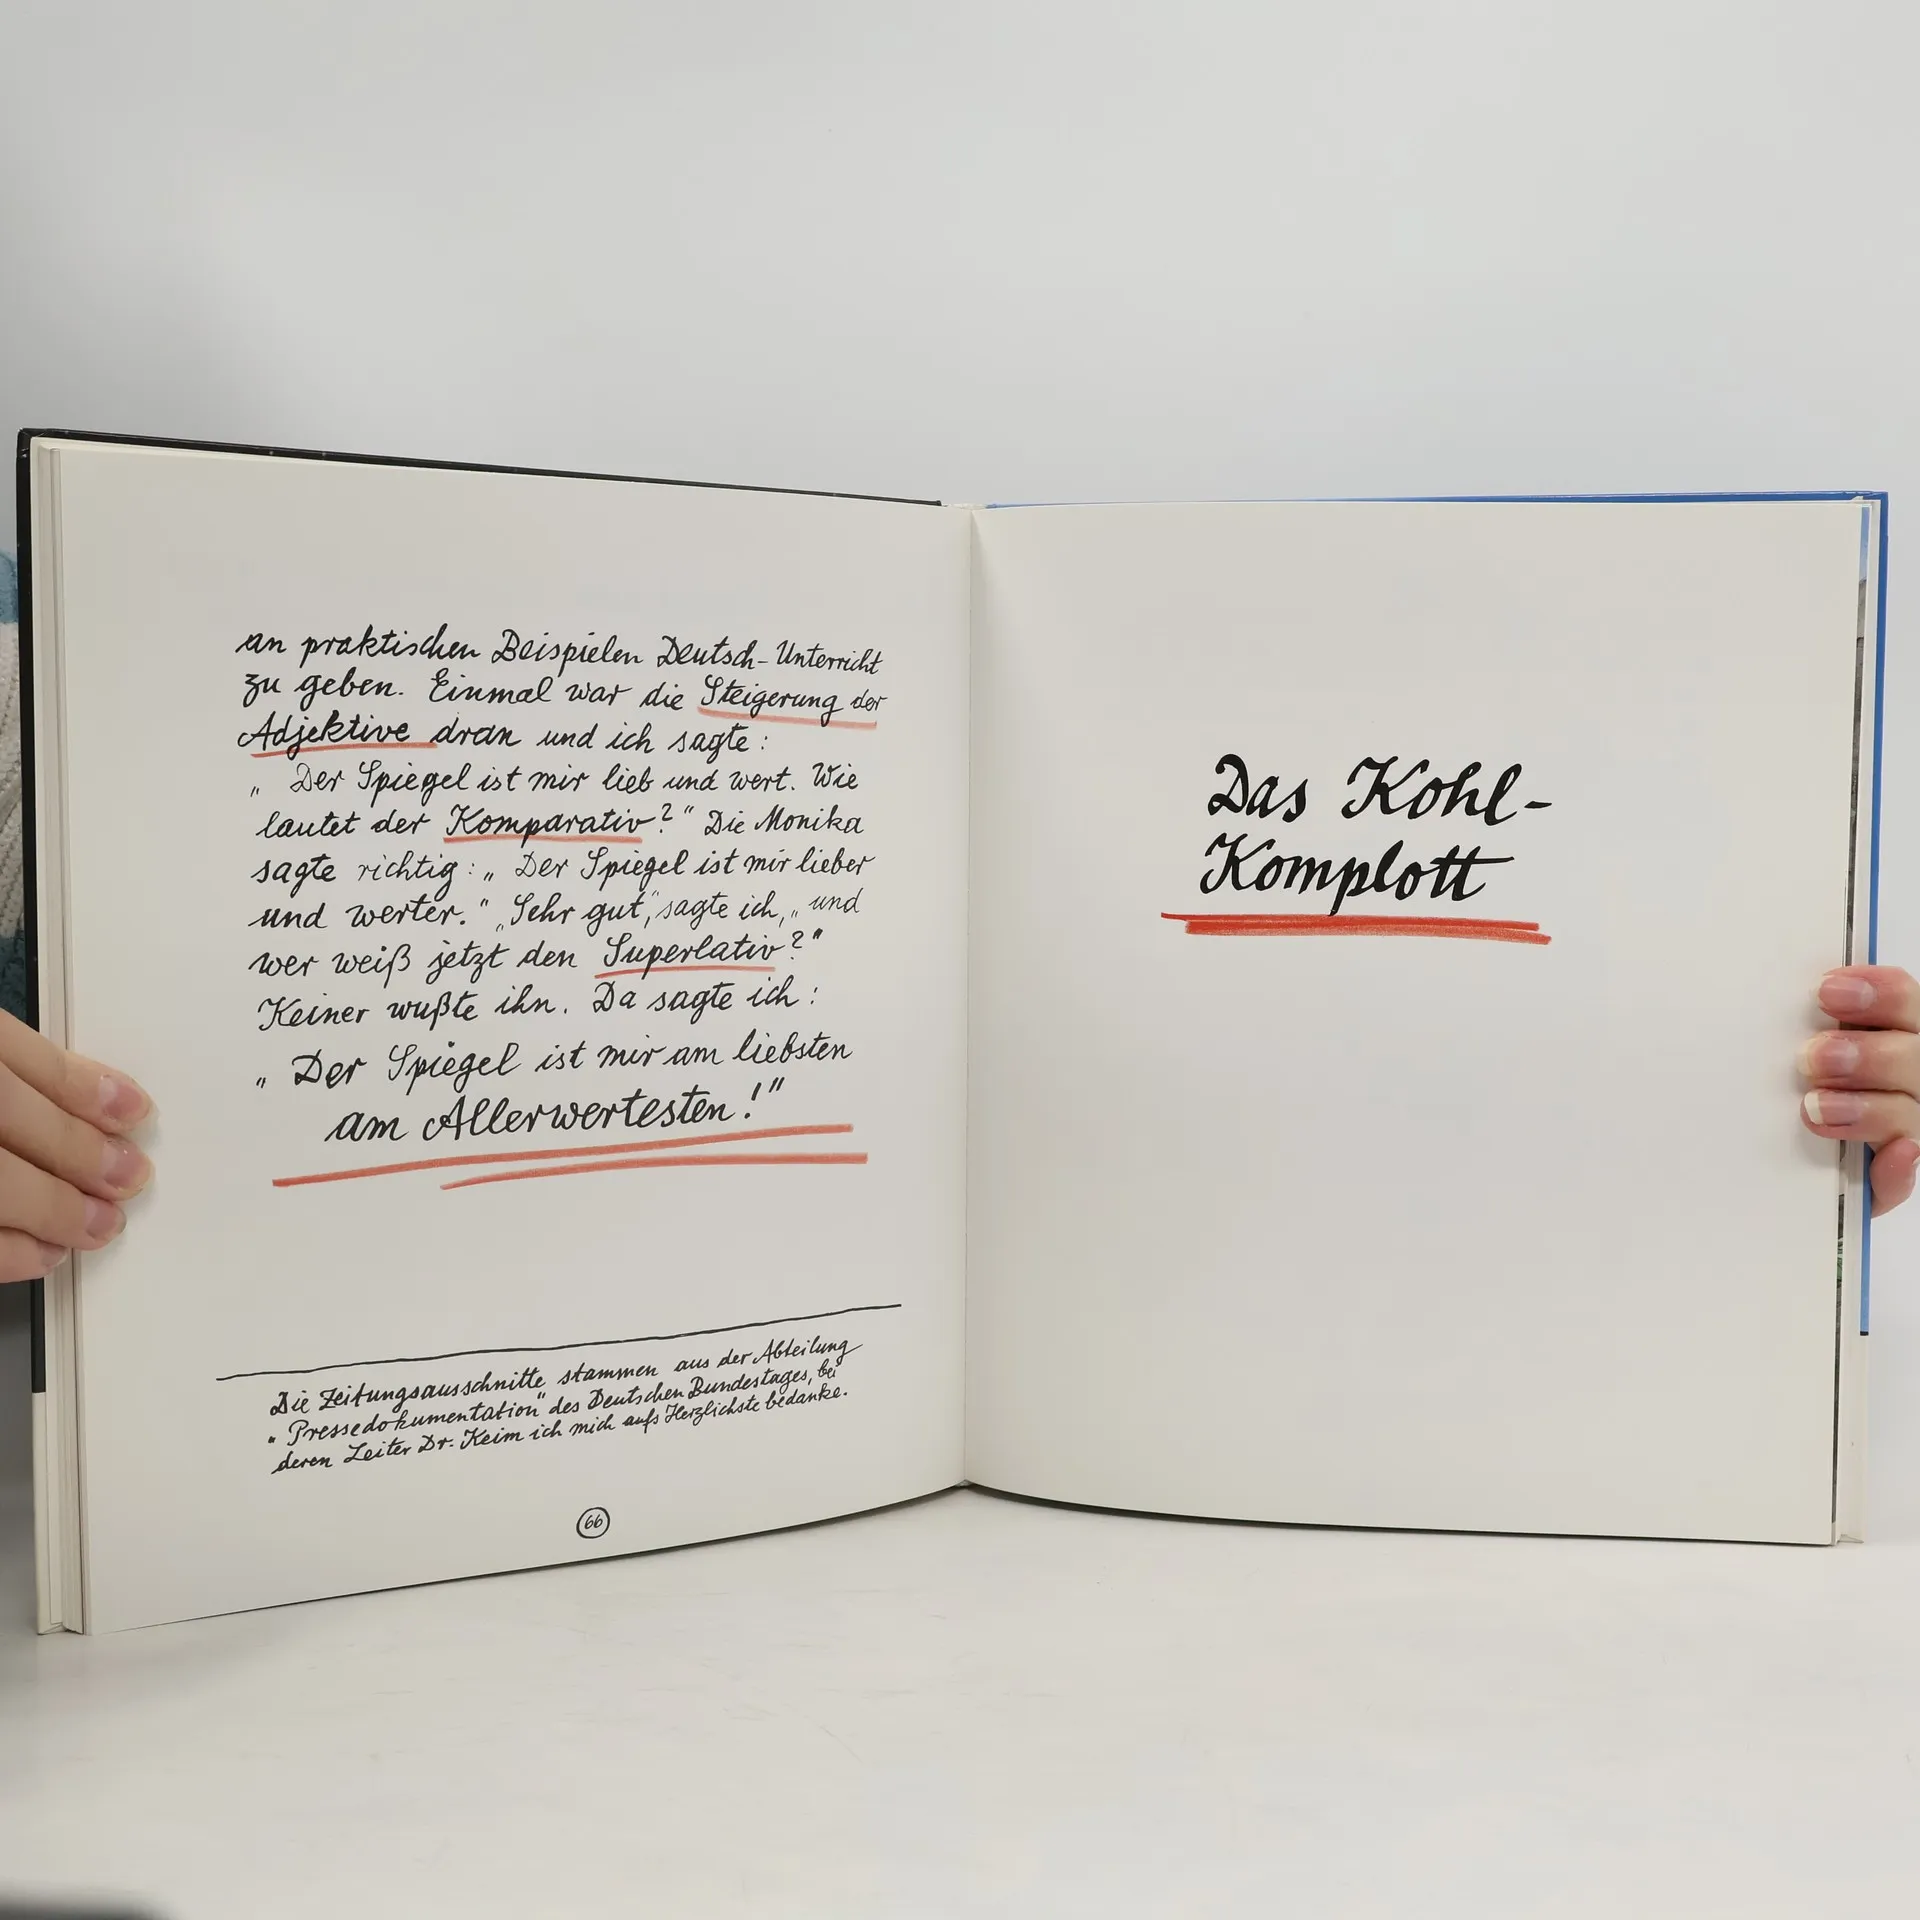 an praktischen Beispielen Deutsch-Unterricht
zu geben. Einmal war die Steigerung der
Adjektive dran und ich sagte:
„Der Spiegel ist mir lieb und wert. Wie
lautet der Komparativ?" Die Monika
sagte richtig: „Der Spiegel ist mir lieber
und werter." „Sehr gut," sagte ich, „und
wer weiß jetzt den Superlativ?"
Keiner wußte ihn. Da sagte ich:
„Der Spiegel ist mir am liebsten
am Allerwertesten!"
Die Zeitungsausschnitte stammen aus der Abteilung
„Pressedokumentation" des Deutschen Bundestages, bei
deren Leiter Dr. Keim ich mich aufs Herzlichste bedanke.
66
Das Kohl-
Komplott